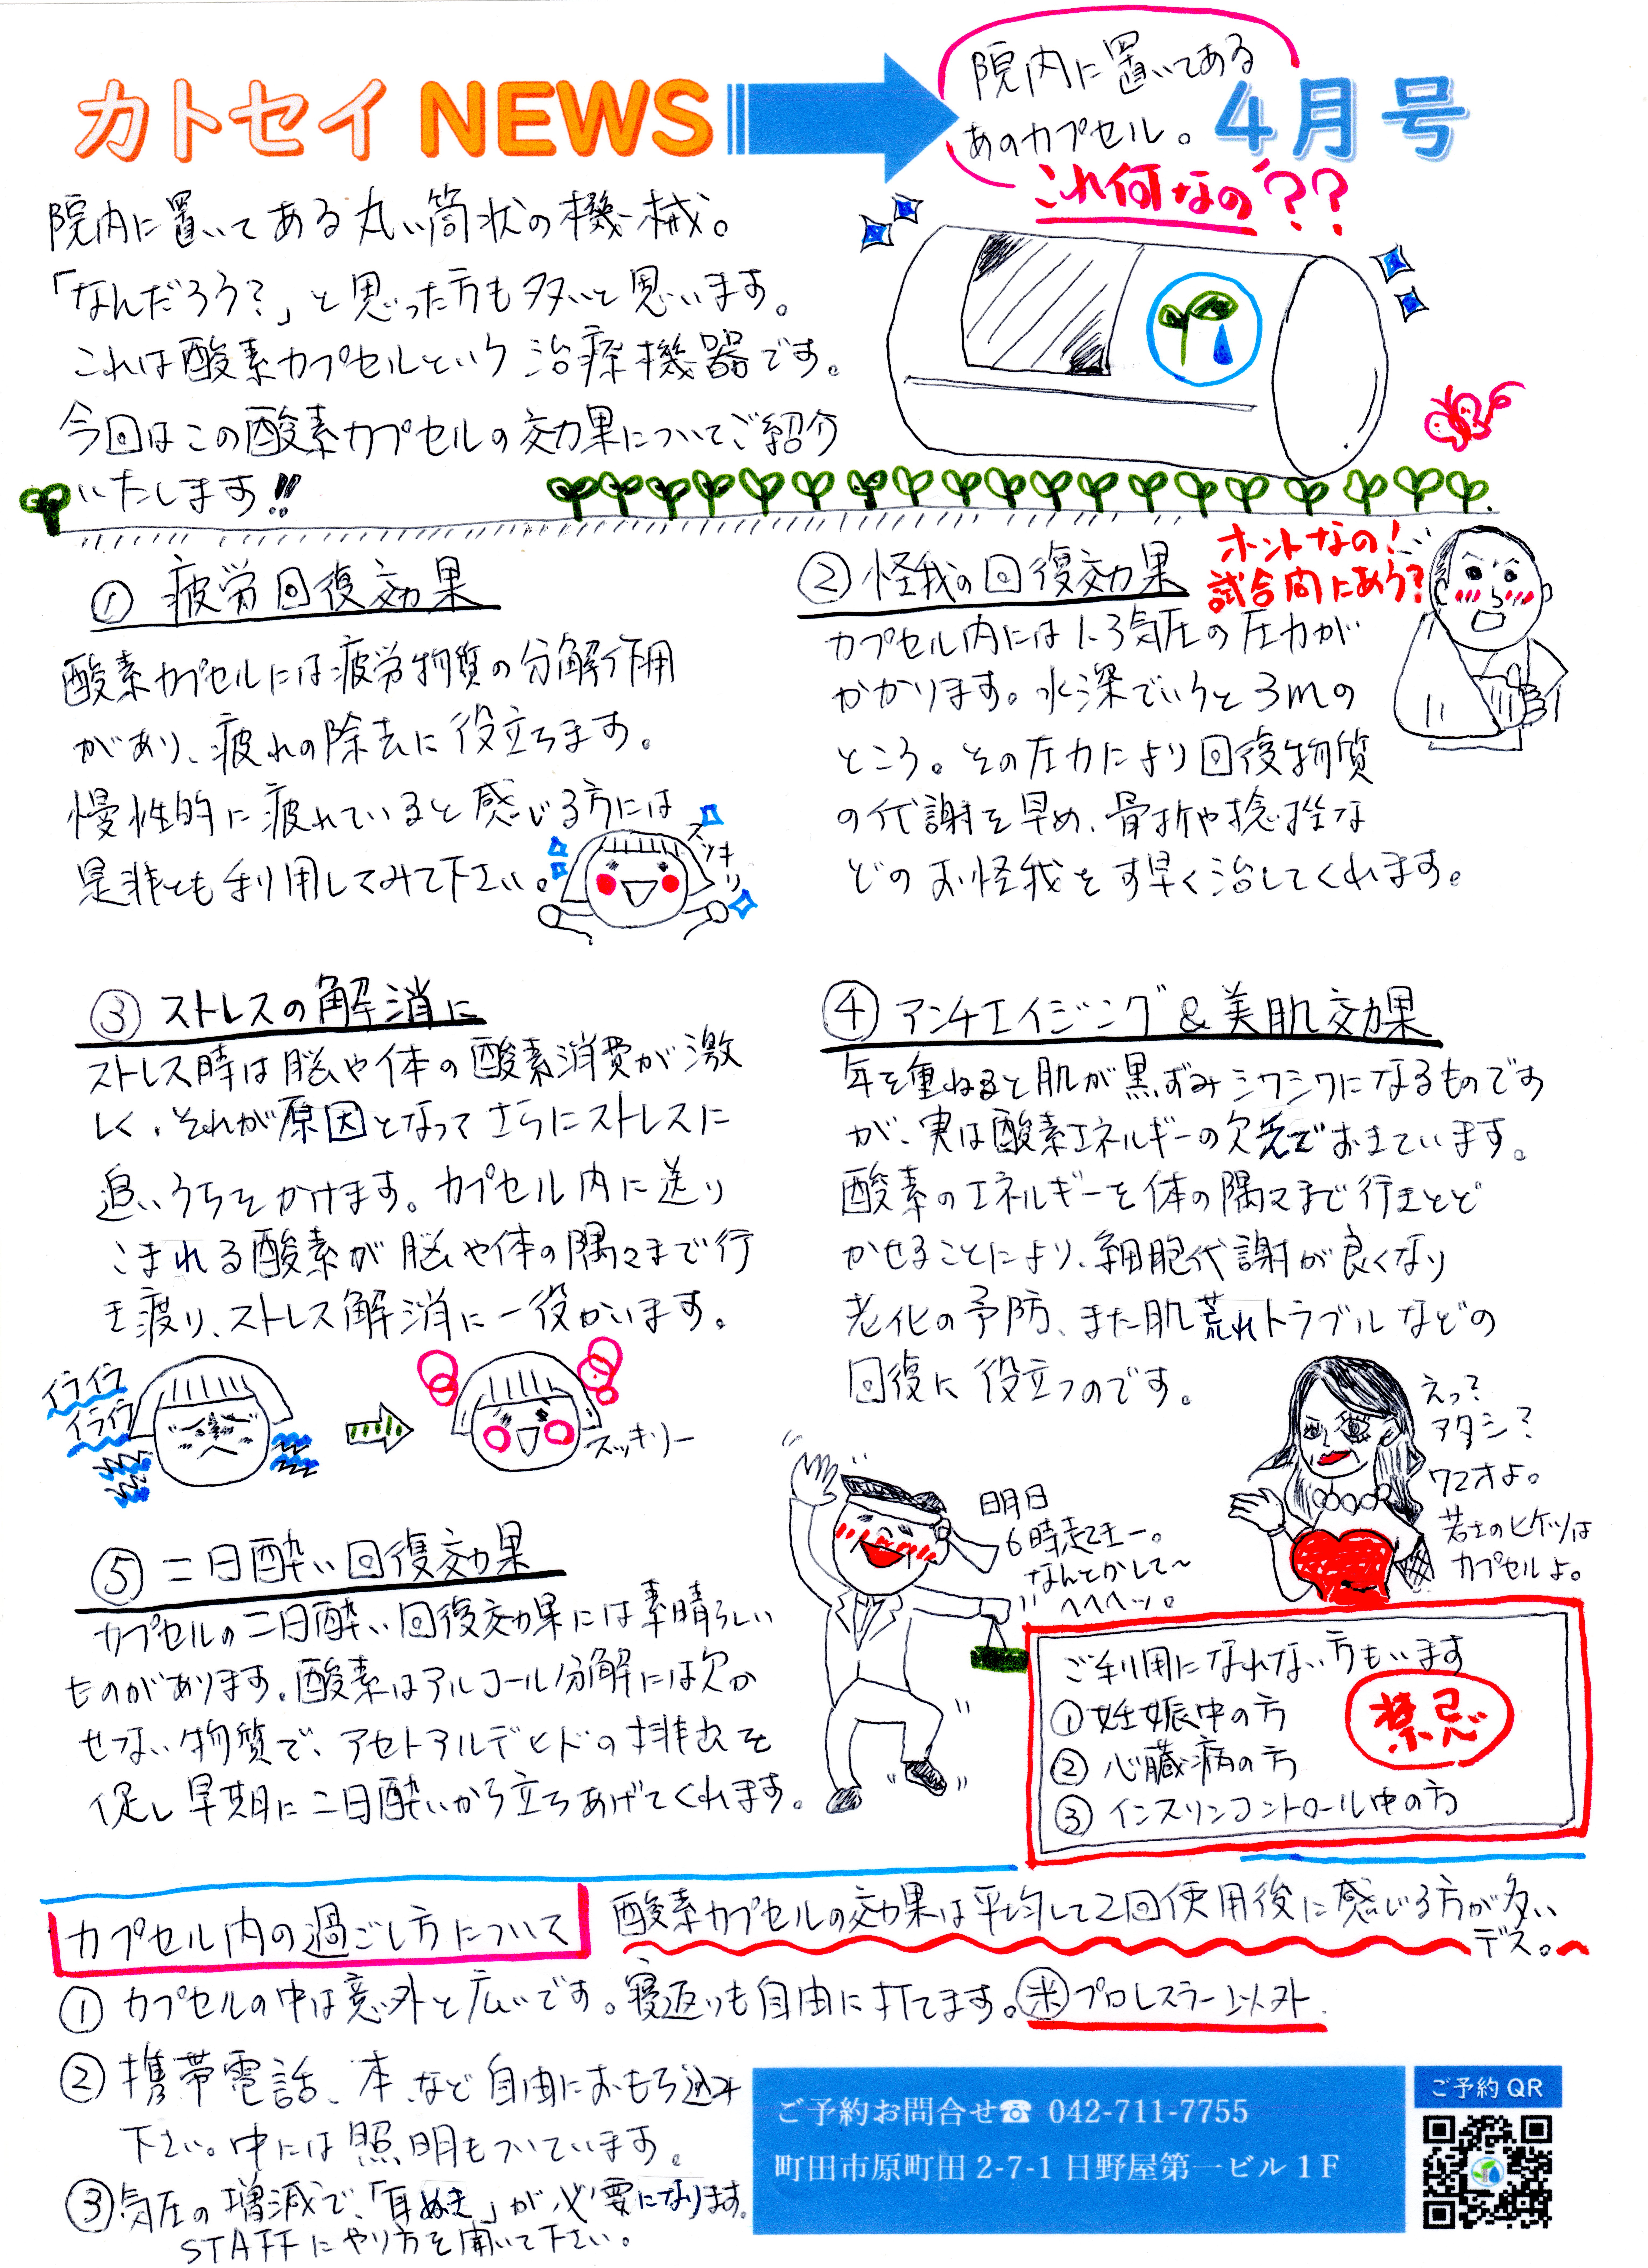 カトセイ NEWS
院内に置いてある
あのカプセル。
これ何なの??
4月号
院内に置いてある丸い筒状の機械。
「なんだろう?」と思った方も多いと思います。
これは酸素カプセルという治療機器です。
今回はこの酸素カプセルの効果についてご紹介
いたします!!
① 疲労回復効果
酸素カプセルには疲労物質の分解作用
があり、疲れの除去に役立ちます。
慢性的に疲れていると感じる方には
是非とも利用してみて下さい。
スッキリ
② 怪我の回復効果
ホントなの!
試合間にあう?
カプセル内には1.3気圧の圧力が
かかります。水深でいうと3mの
ところ。その圧力により回復物質
の代謝を早め、骨折や捻挫な
どのお怪我をす早く治してくれます。
③ ストレスの解消に
ストレス時は脳や体の酸素消費が激
しく、それが原因となってさらにストレスに
追いうちをかけます。カプセル内に送り
こまれる酸素が脳や体の隅々まで行
き渡り、ストレス解消に一役かいます。
イライラ
イライラ
スッキリー
④ アンチエイジング&美肌効果
年を重ねると肌が黒ずみシワシワになるものです
が、実は酸素エネルギーの欠乏でおきています。
酸素のエネルギーを体の隅々まで行きとど
かせることにより、細胞代謝が良くなり
老化の予防、また肌荒れトラブルなどの
回復に役立つのです。
えっ?
アタシ?
72才よ。
若さのヒケツは
カプセルよ。
⑤ 二日酔い回復効果
カプセルの二日酔い回復効果には素晴らしい
ものがあります。酸素はアルコール分解には欠か
せない物質で、アセトアルデヒドの排出を
促し早期に二日酔いから立ちあげてくれます。
明日
6時起きー。
なんとかして〜
へへへッ。
ご利用になれない方もいます
禁忌
① 妊娠中の方
② 心臓病の方
③ インスリンコントロール中の方
カプセル内の過ごし方について
酸素カプセルの効果は平均して2回使用後に感じる方が多い
デス。
① カプセルの中は意外と広いです。寝返りも自由に打てます。㊟プロレスラー以外
② 携帯電話、本、など自由におもち込み
下さい。中には照明もついています。
③ 気圧の増減で、「耳ぬき」が必要になります。
STAFFにやり方を聞いて下さい。
ご予約お問合せ☎ 042-711-7755
町田市原町田 2-7-1 日野屋第一ビル 1F
ご予約 QR